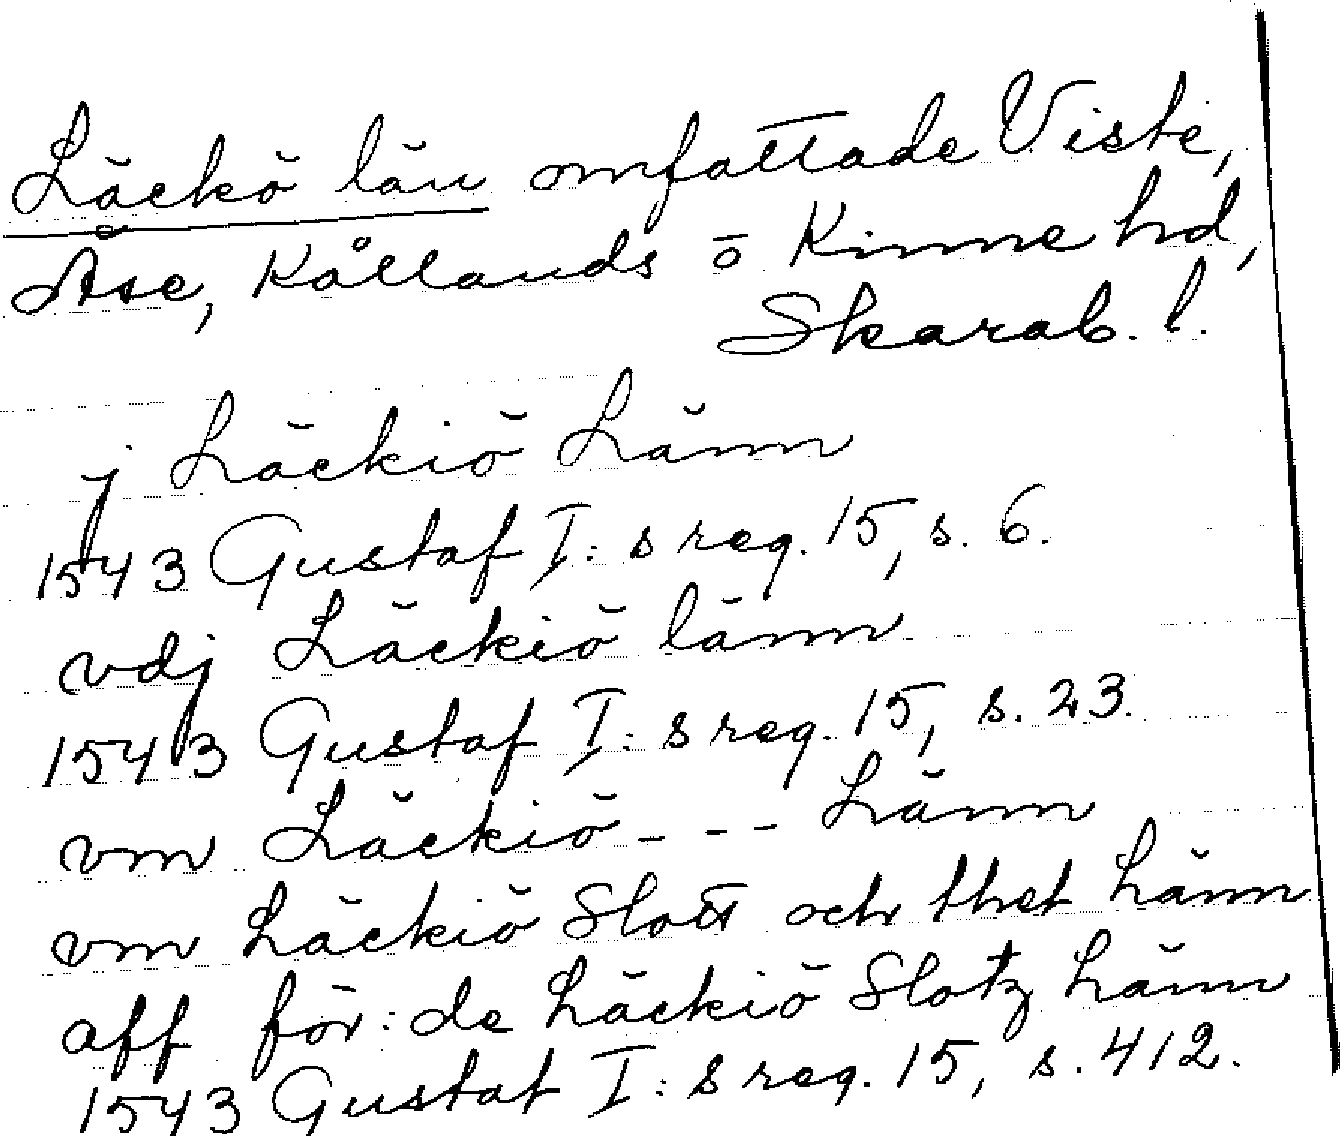 Läckö län omfattade Viste,
Åse, Kållands o Kinne hd,
Skarab. l.
j Läckiö Länn
1543 Gustaf I:s reg. 15, s. 6.
vdj Läckiö länn
1543 Gustaf I:s reg. 15, s. 23.
vm Läckiö - - - Länn
vm Läckiö Slott och thet Länn
aff för:de Läckiö Slotz Länn
1543 Gustaf I:s reg. 15, s. 412.